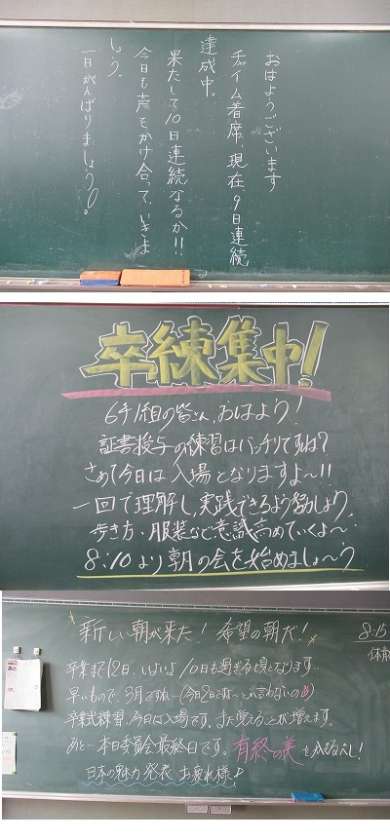 おはようございます
チャイム着席、現在、9日連続
達成中。
果たして10日連続なるか!!
今日も声をかけ合って、いきま
しょう。
一日がんばりましょう。
卒練集中!
6年1組の皆さん、おはよう!
証書授与の練習はバッチリですね?
さて今日は入場となりますよ〜!!
一回で理解し、実践できるよう努めましょう。
歩き方・服装など意識高めていくよ〜
8:10より朝の会を始めましょ〜う
新しい朝が来た! 希望の朝だ!
8:15
卒業まで12日、いよいよ10日を
早いもので、3月ですね
卒業式練習、今日は入場です。また覚えることが増えます。
あと…本日委員会最終日です。有終の美を
日本の魅力発表 お疲れ様♪